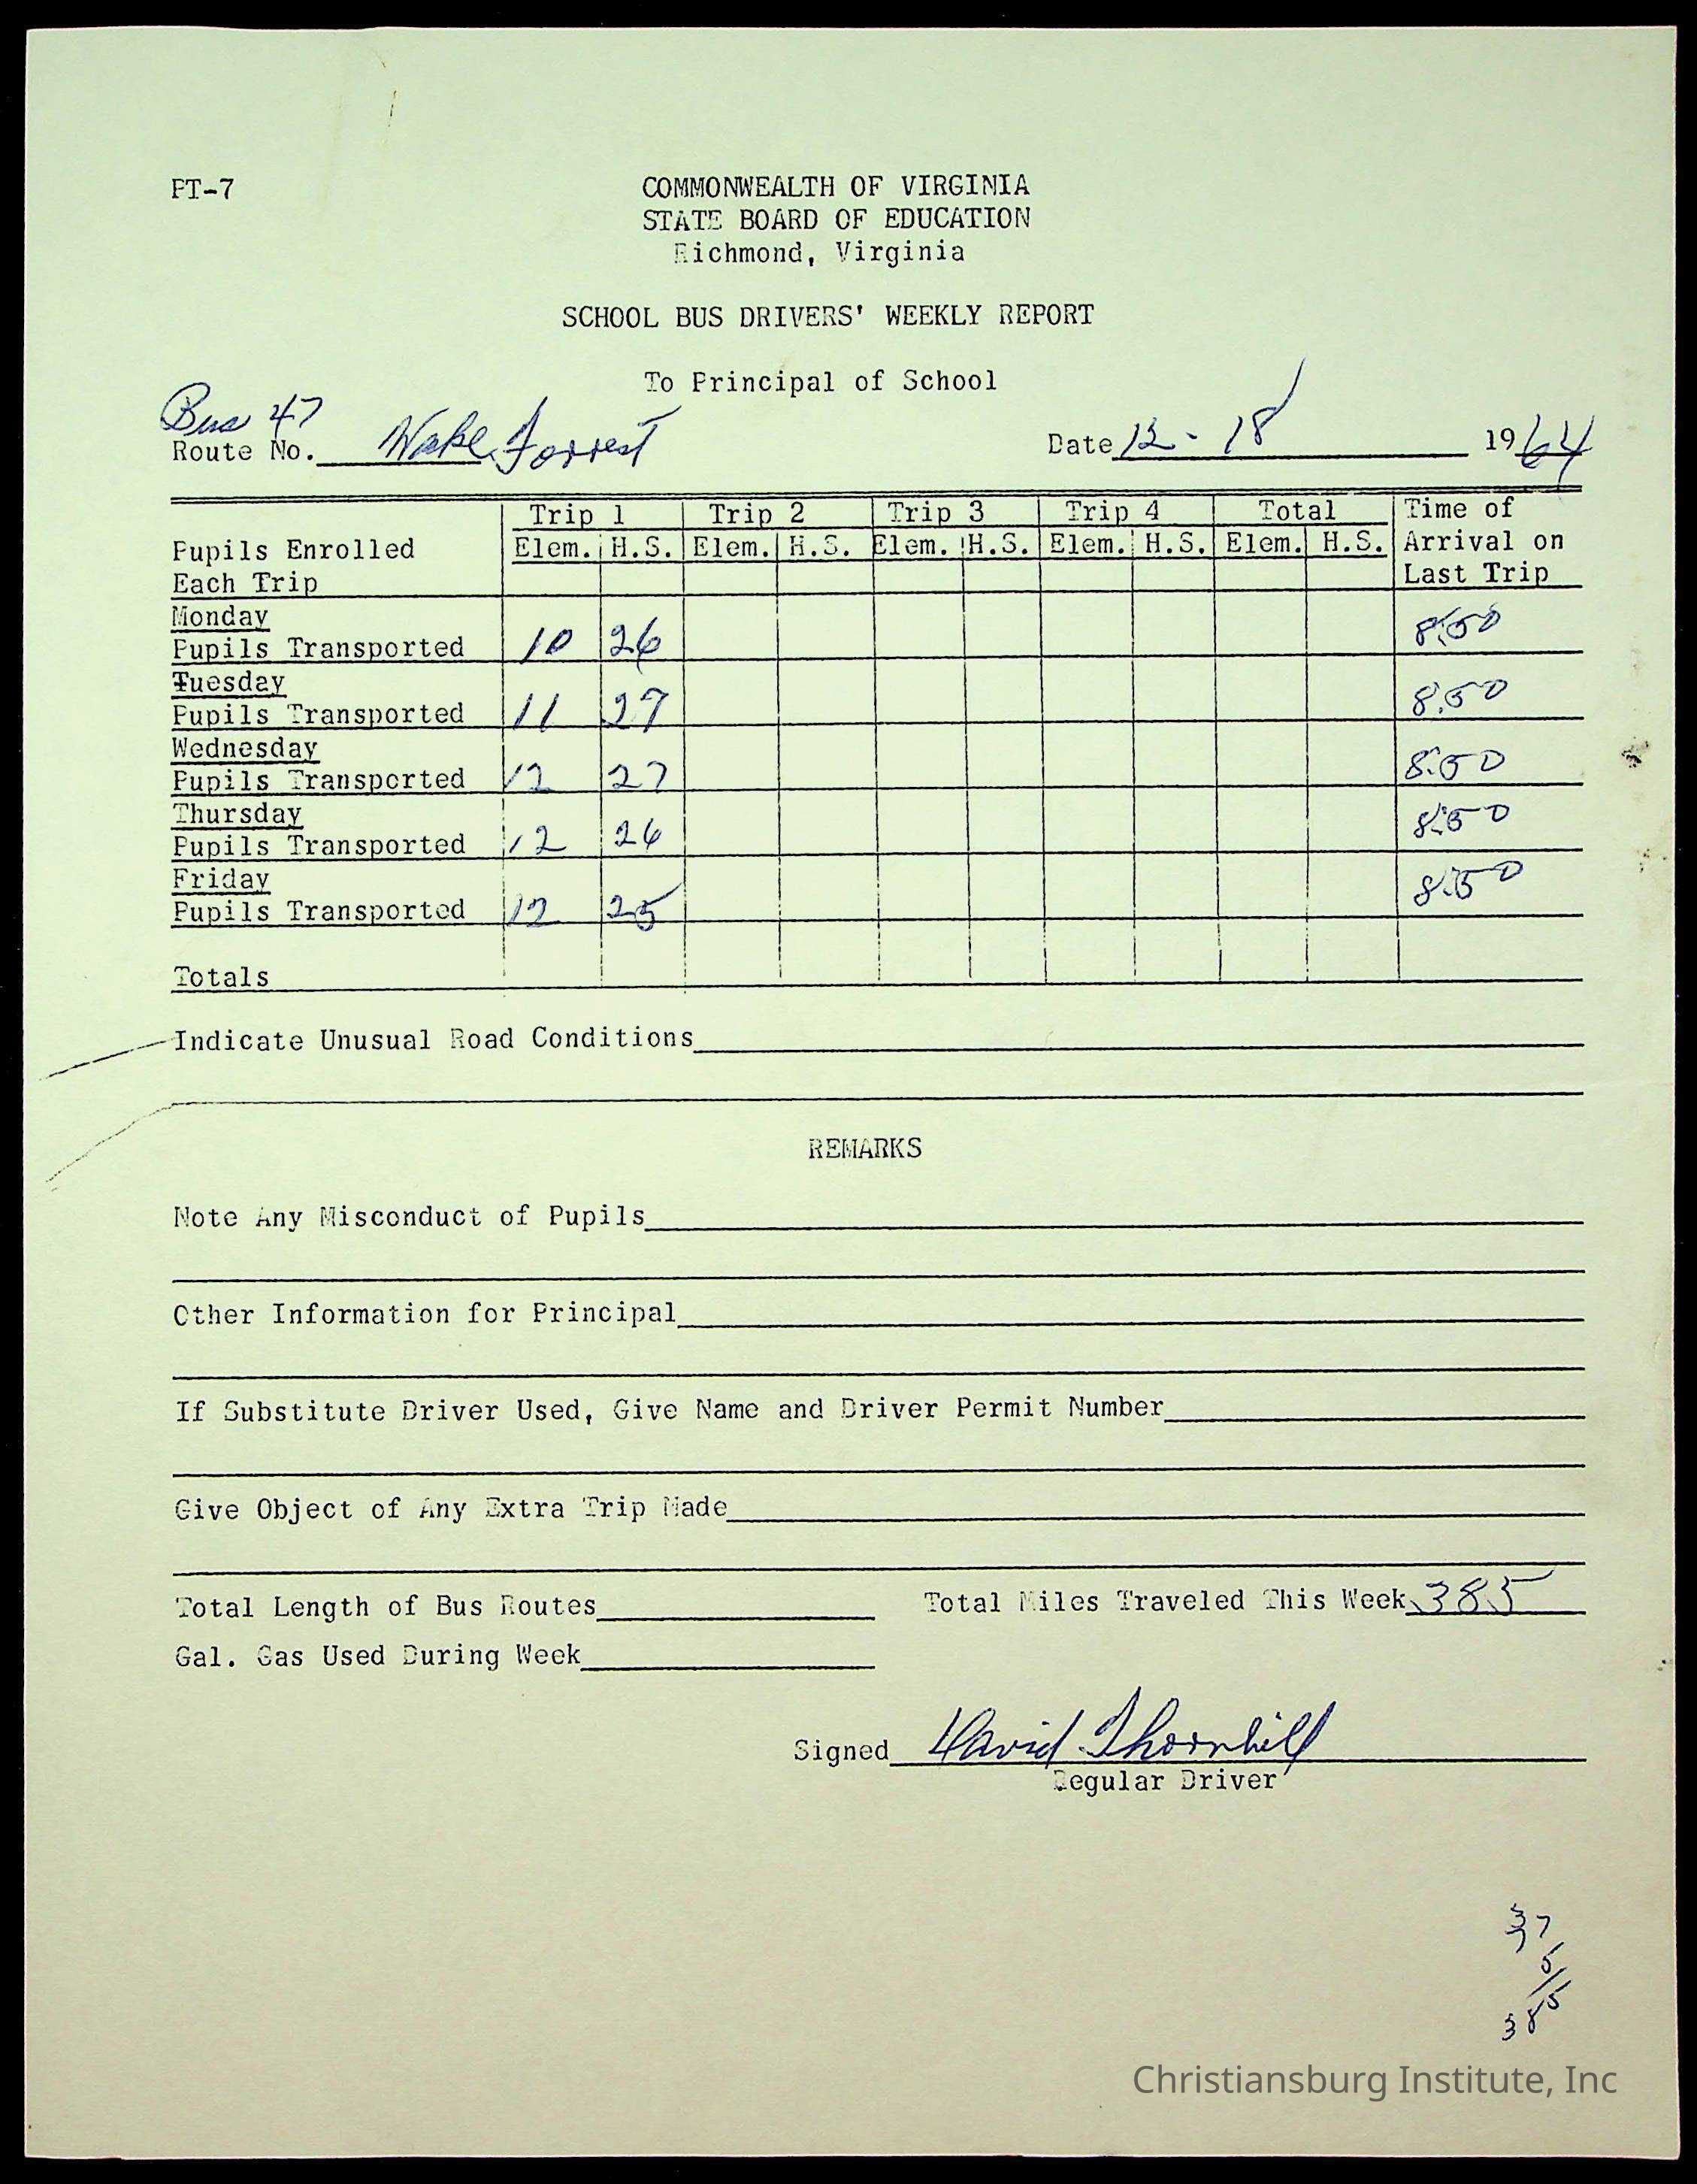 PT-7
COMMONWEALTH OF VIRGINIA
STATE BOARD OF EDUCATION
Richmond, Virginia
SCHOOL BUS DRIVERS' WEEKLY REPORT
To Principal of School
Bus 47
Route No. Wake Forrest Date 12 - 18 1964
Trip 1 Trip 2 Trip 3 Trip 4 Total Time of
Pupils Enrolled Elem. H.S. Elem. H.S. Elem. H.S. Elem. H.S. Elem. H.S. Arrival on
Each Trip Last Trip
Monday
Pupils Transported 10 26 8:50
Tuesday
Pupils Transported 11 27 8:50
Wednesday
Pupils Transported 12 27 8:50
Thursday
Pupils Transported 12 26 8:50
Friday
Pupils Transported 12 25 8:50
Totals
Indicate Unusual Road Conditions
REMARKS
Note Any Misconduct of Pupils
Other Information for Principal
If Substitute Driver Used, Give Name and Driver Permit Number
Give Object of Any Extra Trip Made
Total Length of Bus Routes Total Miles Traveled This Week 385
Gal. Gas Used During Week
Signed David Thornhill
Regular Driver
5
385
Christiansburg Institute, Inc